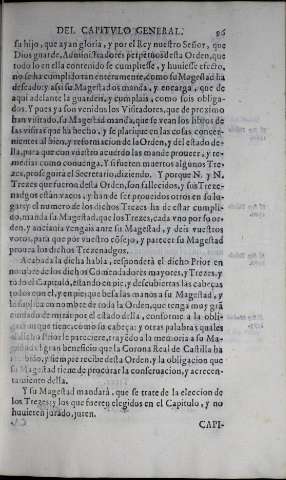 DEL CAPITVLO GENERAL. 96
su hijo, que ayan gloria, y por el Rey nuestro Señor, que
Dios guarde, Administradores perpetuos desta Orden, que
todo lo en ella contenido se cumpliesse, y huuiesse efecto,
no se ha cumplido tan enteramente, como su Magestad ha
deseado: y assi su Magestad os manda, y encarga, que de
aqui adelante la guardeis, y cumplais, como sois obliga-
dos. Y pues ya son venidos los Visitadores, que de proximo
han visitado, su Magestad manda, que se vean los libros de
las visitas que ha hecho, y se platique en las cosas concer-
nientes al bien, y reformacion de la Orden, y del estado de-
lla, para que con vuestro acuerdo las mande proueer, y re-
mediar como conuenga. Y si fueren muertos algunos Tre-
zes, proseguira el Secretario, diziendo. Y porque N. y N.
Trezes que fueron desta Orden, son fallecidos, y sus Treze-
nadgos estàn vacos, y han de ser proueidos otros en su lu-
gar: y el numero de los dichos Trezes ha de estar cumpli-
do, manda su Magestad, que los Trezes, cada vno por su or-
den, y anciania vengais ante su Magestad, y deis vuestros
votos, para que por vuestro cōsejo, y parecer su Magestad
prouea los dichos Trezenadgos.
Acabada la dicha habla, responderà el dicho Prior en
nombre de los dichos Comendadores mayores, y Trezes, y
todo el Capitulo, estando en pie, y descubiertas las cabeças
todos con el, y en pie; que besa las manos a su Magestad, y
le suplica en nombre de toda la Orden, que tenga muy grā
cuidado de mirar por el estado della, conforme a la obli-
gacion que tiene, como su cabeça: y otras palabras quales
al dicho Prior le pareciere, trayēdo a la memoria a su Ma-
gestad el gran beneficio que la Corona Real de Castilla ha
recibido, y siempre recibe desta Orden, y la obligacion que
su Magestad tiene de procurar la conseruacion, y acrecen-
tamiento della.
Y su Magestad mandarà, que se trate de la eleccion de
los Trezes: y los que fueren elegidos en el Capitulo, y no
huuieren jurado, juren.
CAPI-